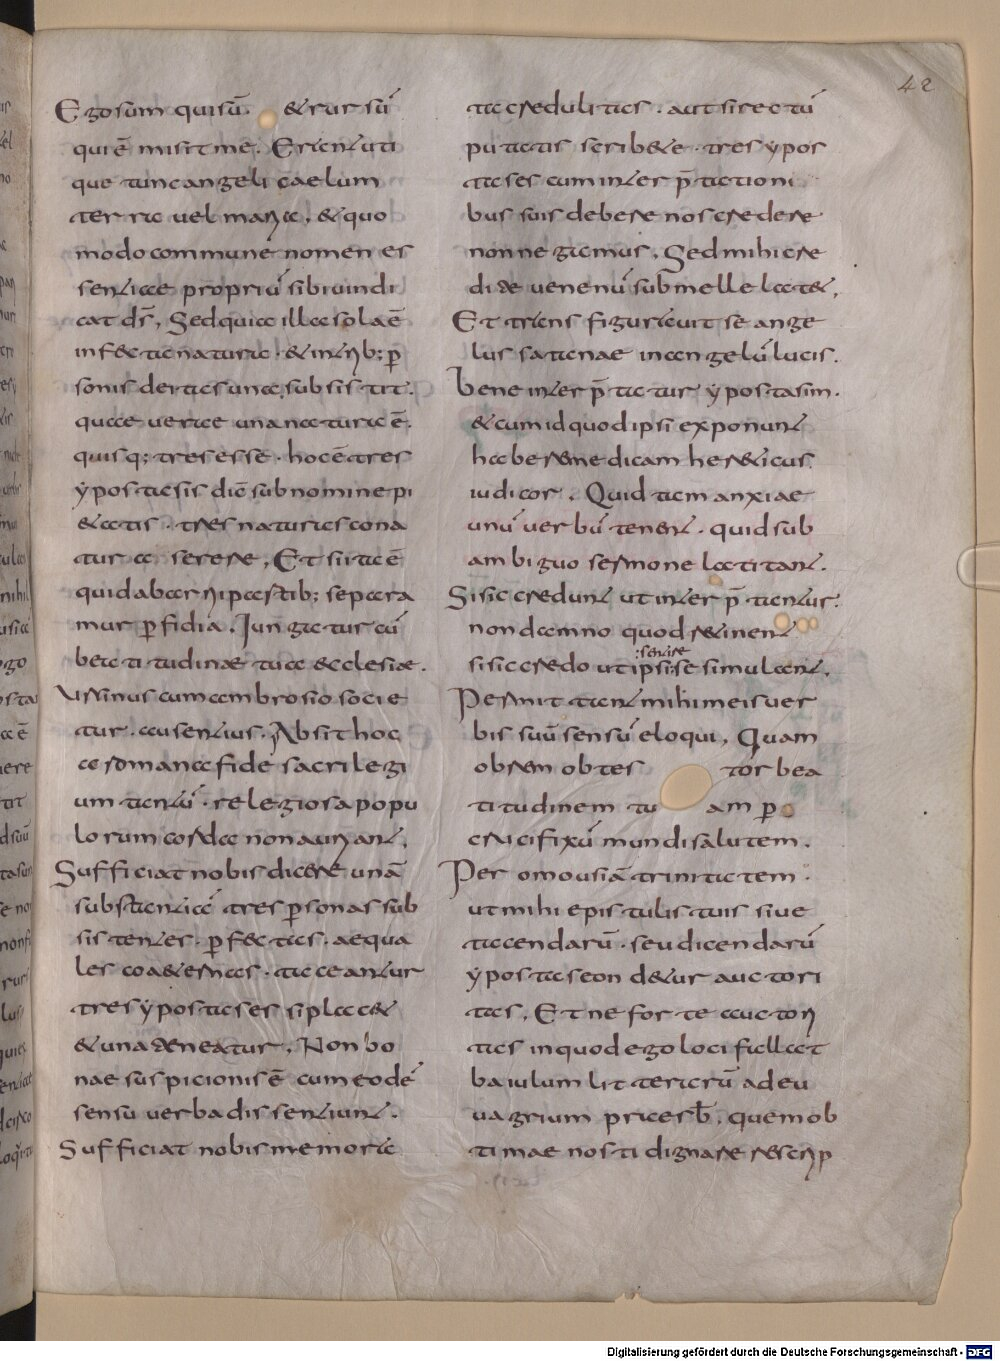 42
Ego sum qui sū. & rursū
qui ē misit me. Erant uti
que tunc angeli caelum
terra uel maria. & quo
modo commune nomen es
sentiae propriū sibi uindi
cat ds̄. Sed quia illa sola ē
infecta natura. & in trib; p̱
sonis deitas una subsistit.
quae uere una natura ē.
quisq; tres esse. hoc ē tres
ypostasis dic̄ sub nomine pi
&atis. tres naturas cona
tur asserere, Et si ita ē
quid ab arrii parietib; separa
mur p̱fidia. Iungatur cū
beatitudinae tuae ecclesiae.
Ursinus cum ambrosio socie
tur. auxentius. Absit hoc
a romana fide sacrilegi
um tantū. relegiosa popu
lorum corda non auriant.
Sufficiat nobis dicere unā
substantiā tres p̱sonas sub
sistentes. p̱fectas. aequa
les coaeternas. taceantur
tres ypostases si plac&
& una teneatur. Non bo
nae suspicionis ē cum eodē
sensu uerba dissentiunt.
Sufficiat nobis memorie
ta credulitas. aut si rectū
putatis scribere. tres ypos
tases cum inter p̄tationi
bus suis debere nos credere
non negamus. Sed mihi cre
dite uenenū sub melle lat&,
Et transfigurauit se ange
lus satanae in angelū lucis.
bene inter p̄tatur ypostasim.
& cum id quod ipsi exponunt
habere me dicam hereticus
iudicor. Quid tam anxiae
unū uerbū tenent. quid sub
ambiguo sermone latitant.
Si sic credunt ut inter p̄tantur.
non damno quod retinent
:sentire
si sic credo ut ipsi se simulant,
Permittant mihi meis uer
bis suū sensū eloqui, Quam
obrem obtes tor bea
titudinem tu am p̱
crucifixū mundi salutem.
Per omousiā trinitatem.
ut mihi epistulis tuis siue
tacendarū. seu dicendarū
ypostaseon detur auctori
tas, Et ne forte auctori
tas in quod ego loci fallat
baiulum litterarū ad eu
uagrium praesb̄. quem ob
timae nosti dignare rescrip
Digitalisierung gefördert durch die Deutsche Forschungsgemeinschaft - DFG